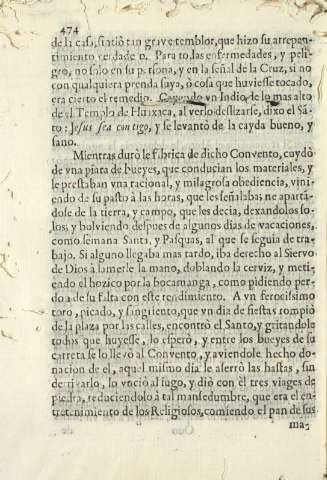 474
de la casa, sintiò tan grave temblor, que hizo su arrepen-
timiento verdadero. Para todas enfermedades, y peli-
gro, no solo en su persona, y en la señal de la Cruz, si no
con qualquiera prenda suya, ò cosa que huviesse tocado,
era cierto el remedio. Cayendo vn Indio de lo mas alto
de el Templo de Huixaca, al verlo deslizarse, dixo el Sã-
to: Jesus sea contigo, y se levantò de la cayda bueno, y
sano.
Mientras durò le fabrica de dicho Convento, cuydò
de vna piara de bueyes, que conducian los materiales, y
le prestaban vna racional, y milagrosa obediencia, vini-
endo de su pasto à las horas, que les señalaba; ne apartã-
dose de la tierra, y campo, que les decia, dexandolos so-
los; y bolviendo despues de algunos dias de vacaciones,
como semana Santa, y Pasquas, al que se seguia de tra-
bajo. Si alguno llegaba mas tardo, iba derecho al Siervo
de Dios à lamerle la mano, doblando la cerviz, y meti-
endo el hozico por la bocamanga, como pidiendo per-
don de su falta con este rendimiento. A vn ferocissimo
toro, picado, y sangriento, que vn dia de fiestas rompiò
de la plaza por las calles, encontrò el Santo, y gritandole
todos que huyesse, lo esperò, y entre los bueyes de su
carreta se lo llevò al Convento, y aviendole hecho do-
nacion de el, aquel mismo dia le aserrò las hastas, sin
derribarlo, lo vnciò al jugo, y diò con èl tres viages de
piedra, reduciendolo à tal mansedumbre, que era el en-
tretenimiento de los Religiosos, comiendo el pan de sus
ma-